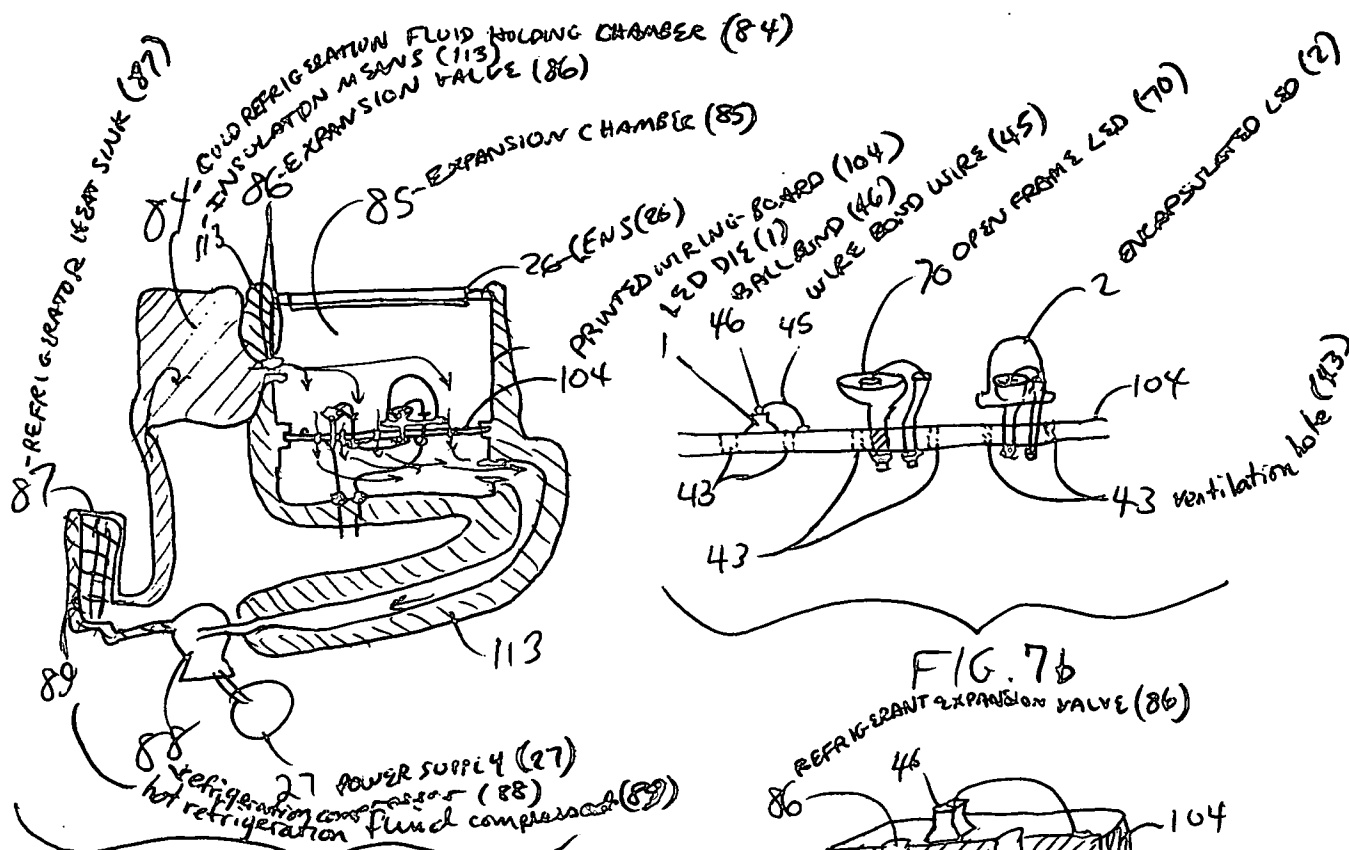 87-REFRIGERATOR HEAT SINK (87)
84-COLD REFRIGERATION FLUID HOLDING CHAMBER (84)
113-INSULATION MEANS (113)
86-EXPANSION VALVE (86)
85-EXPANSION CHAMBER (85)
26-LENS (26)
PRINTED WIRING BOARD (104)
104
LED DIE (1)
1
BALL BOND (46)
46
WIRE BOND WIRE (45)
45
70 OPEN FRAME LED (70)
ENCAPSULATED LED (2)
2
104
43
43
43 ventilation hole (43)
87
113
89
88
refrigeration compressor (88)
27 POWER SUPPLY (27)
hot refrigeration fluid compressed (89)
FIG. 7b
REFRIGERANT EXPANSION VALVE (86)
86
46
104